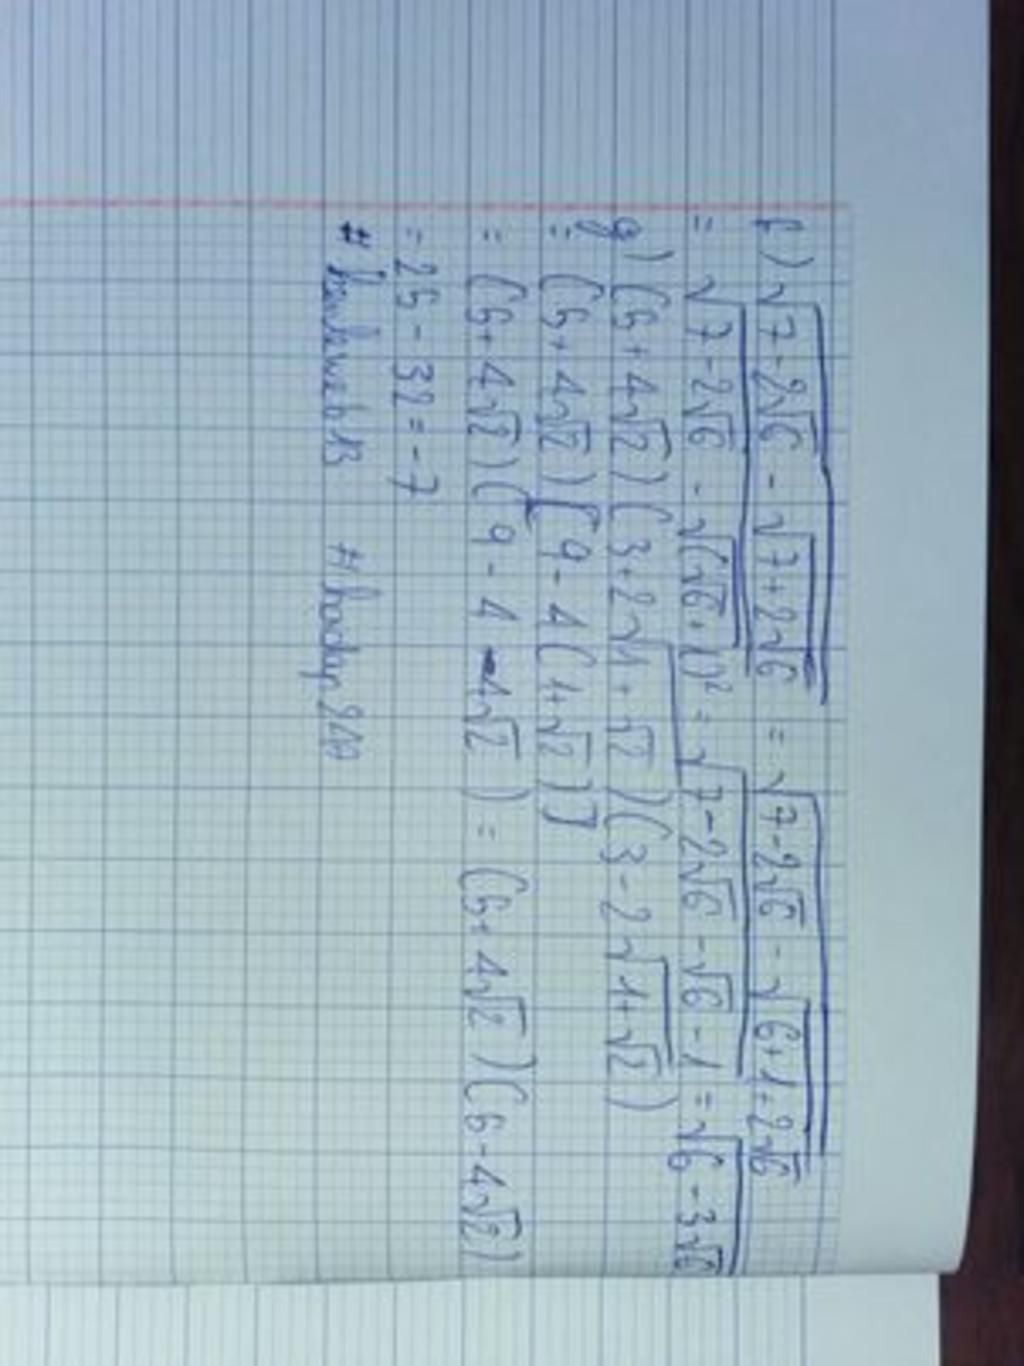 f) √(7-2√6 - √(7+2√6)) = √(7-2√6 - √(6+1+2√6))
= √(7-2√6 - √((√6+1)²)) = √(7-2√6-√6-1) = √(6-3√6)
g) (5+4√2)(3+2√(1+√2))(3-2√(1+√2))
= (5+4√2)[9-4(1+√2)]
= (5+4√2)(9-4-4√2) = (5+4√2)(5-4√2)
= 25-32=-7